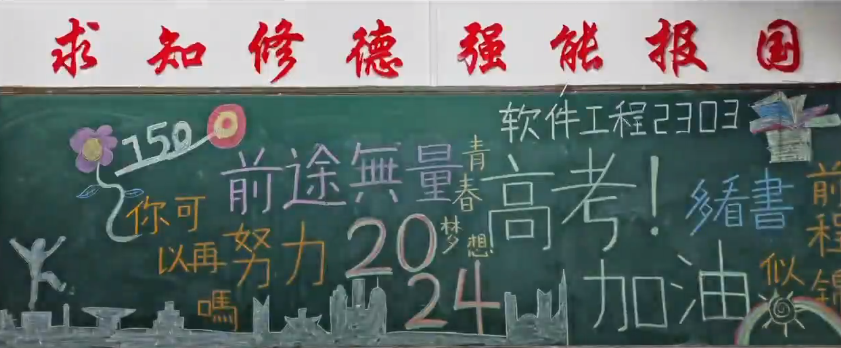 求知修德强能报国
软件工程2303
150
前途無量
青春
梦想
高考!
加油
多看書
前程似錦
你可以再努力嗎
2024